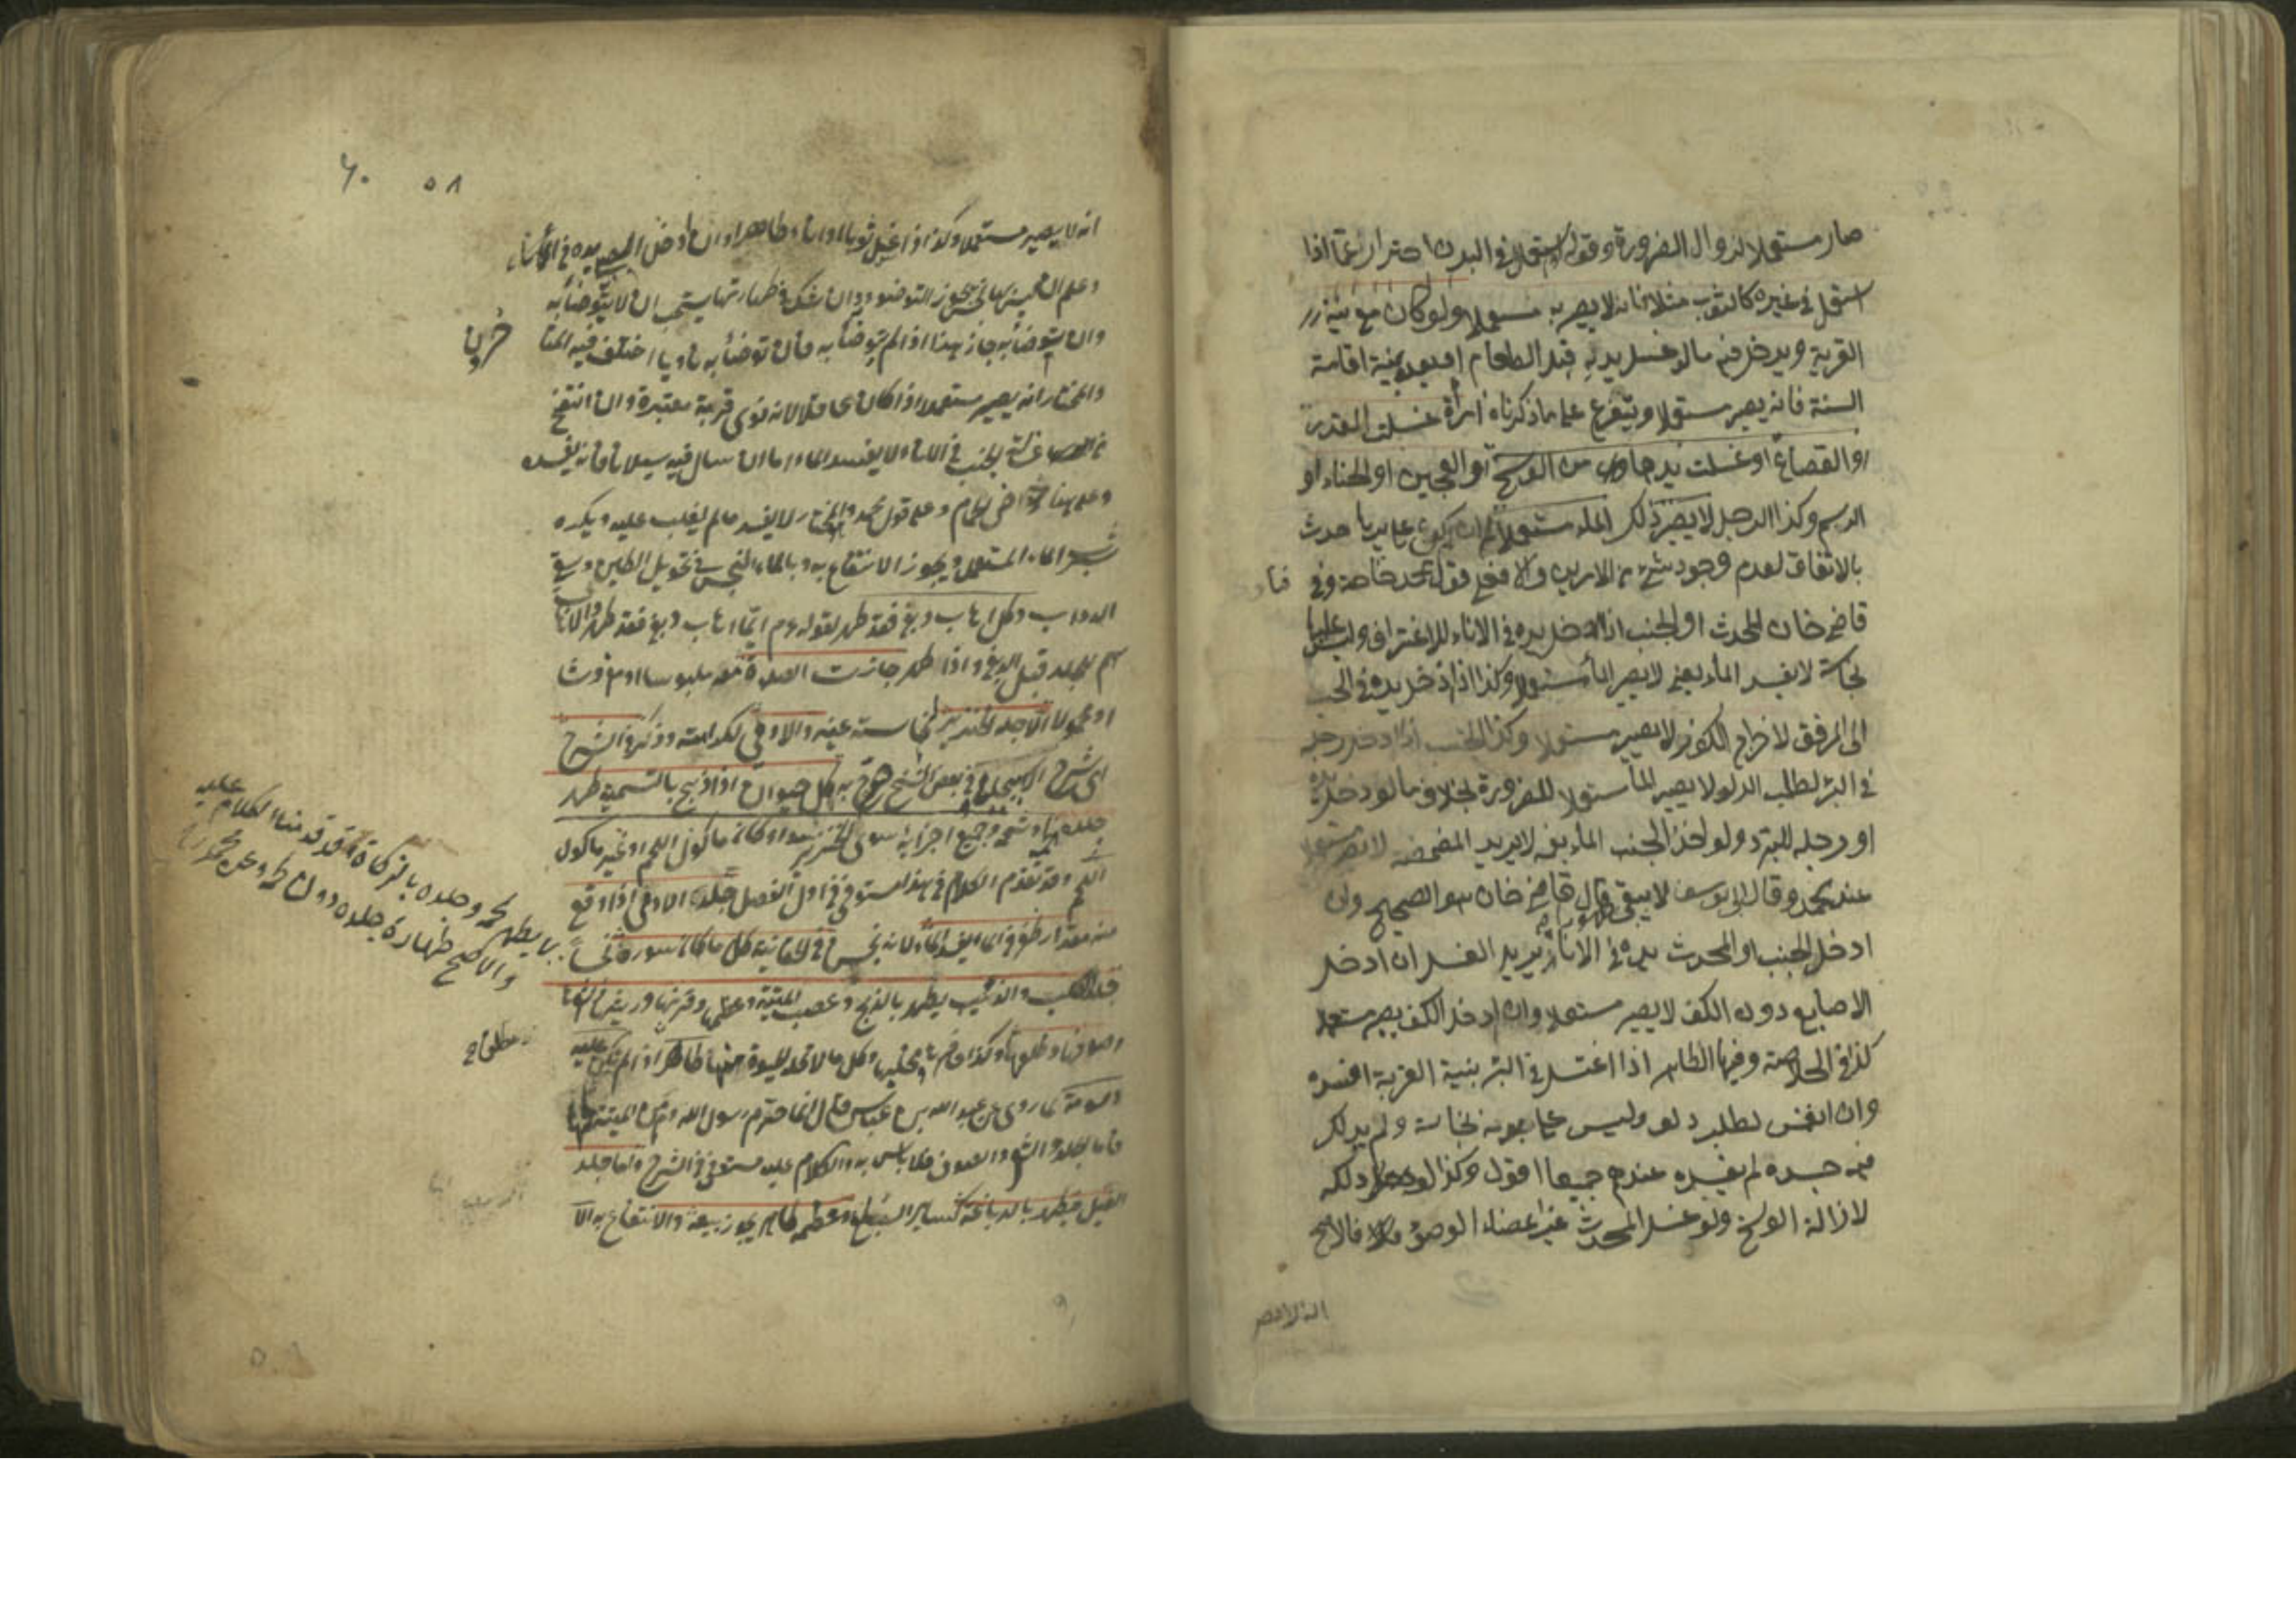 صار مستعملا لزوال الضرورة وقوله استعمل في البدن احتراز عما اذا
استعمل في غيره كالثوب مثلا فانه لا يصير به مستعملا ولو كان مع نية
القربة ويدخل فيه ما لو غسل يديه قبل الطعام او بعده بنية اقامة
السنة فانه يصير مستعملا ويتفرع على ما ذكرناه امرأة غسلت القدر
او القصاع او غسلت يدها من الوسخ او العجين او الحناء او
الدسم وكذا الرجل لا يصير ذلك الماء مستعملا يكون على يديها حدث
بالاتفاق لعدم وجود شيء من الامرين قول محمد خاصة وفي فتاوى
قاضي خان المحدث او الجنب اذا ادخل يده في الاناء للاغتراف وليس عليها
نجاسة لا يفسد الماء يعني لا يصير الماء مستعملا وكذا اذا ادخل يده في الجب
الى المرفق لاخراج الكوز لا يصير مستعملا وكذا الجنب اذا ادخل رجله
في البئر لطلب الدلو لا يصير الماء مستعملا للضرورة بخلاف ما لو ادخل يده
او رجله للتبرد ولو اخذ الجنب الماء بفيه لا يريد المضمضة لا يصير مستعملا
عند محمد وقال ابو يوسف لا يبقى طهورا قال قاضي خان هو الصحيح وان
ادخل الجنب او المحدث يده في الاناء يريد الغسل ان ادخل
الاصابع دون الكف لا يصير مستعملا وان ادخل الكف يصير مستعملا
كذا في الخلاصة وفيها الطاهر اذا اغتسل في البئر بنية القربة افسده
وان انغمس لطلب دلو وليس على بدنه نجاسة ولم يدلك
فيه جسده لم يفسده عندهم جميعا اقول وكذا لو دلكه
لازالة الوسخ ولو غسل المحدث غير اعضاء الوضوء فالاصح
انه لا يصير
٦٠ ٥٨
انه لا يصير مستعملا وكذا اذا غسل ثوبا او اناء طاهرا وان ادخل الصبي يده في الاناء
وعلم ان ليس بها نجس يجوز التوضؤ به وان شك في طهارتها يستحب ان لا يتوضأ به
وان توضأ به جاز هذا اذا لم يتوضأ به فان توضأ به ناويا اختلف فيه المتأخرين
والمختار انه يصير مستعملا اذا كان عاقلا لانه نوى قربة معتبرة وان انتضح
من غسالة الجنب في الاناء لا يفسد الماء اما ان سال فيه سيلانا فانه يفسده
وعلى هذا حوض الحمام وعلى قول محمد والمختار لا يفسد ما لم يغلب عليه ويكره
شرب الماء المستعمل ويجوز الانتفاع به وبالماء النجس في تحويل الطين وسقي
الدواب وكل اهاب دبغ فقد طهر لقوله ءم ايما اهاب دبغ فقد طهر والاهاب
اسم للجلد قبل الدبغ واذا طهر جازت الصلاة معه ملبوسا او مفروشا
او محمولا الا جلد الخنزير لنجاسة عينه والادمي لكرامته وذكر في الشرح
اي شرح الاسبيجابي في بعض النسخ صرح به كل حيوان اذا ذبح بالتسمية طهر
جلده وشحمه وجميع اجزائه سوى الخنزير سواء كان مأكول اللحم او غير مأكول
اللحم وقد تقدم الكلام في هذا مستوفى في اول الفصل جلد الادمي اذا وقع
منه مقدار ظفر في الماء يفسد الماء لانه نجس وفي الخانية كل ما كان سوره نجسا
جلد الكلب والذئب يطهر بالذبح وعصب الميتة وعظمها وقرنها وريشها
وصوفها وظلفها وكذا حافرها ومخلبها وكل ما لا تحله الحياة منها طاهر اذا لم تكن عليه
دسومة لما روي عن عبد الله بن عباس قال انما حرم رسول الله ءم من الميتة لحمها
فاما الجلد والشعر والصوف فلا باس به والكلام عليه مستوفى في الشرح واما جلد
الفيل فيطهر بالدباغة كسائر السباع وعظمه طاهر يجوز بيعه والانتفاع به الا
يطهر لحمه وجلده بالذكاة قد قدمنا الكلام عليه
والاصح طهارة جلده دون لحمه
مطلقا